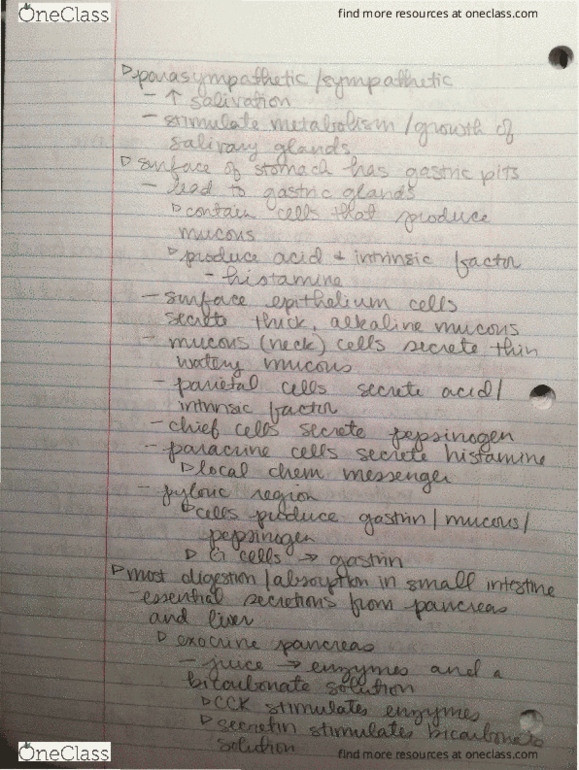 OneClass
find more resources at oneclass.com
▷ parasympathetic/sympathetic
- ↑ salivation
- stimulate metabolism/growth of
salivary glands
▷ surface of stomach has gastric pits
- lead to gastric glands
▷ contain cells that produce
mucous
▷ produce acid + intrinsic factor
- histamine
- surface epithelium cells
secrete thick, alkaline mucous
- mucous (neck) cells secrete thin
watery mucous
- parietal cells secrete acid/
intrinsic factor
- chief cells secrete pepsinogen
- paracrine cells secrete histamine
▷ local chem messenger
- pyloric region
▷ cells produce gastrin/mucous/
pepsinogen
▷ G cells → gastrin
▷ most digestion/absorption in small intestine
- essential secretions from pancreas
and liver
▷ exocrine pancreas
- juice → enzymes and a
bicarbonate solution
▷ CCK stimulates enzymes
▷ secretin stimulates bicarbonate
solution
OneClass
find more resources at oneclass.com